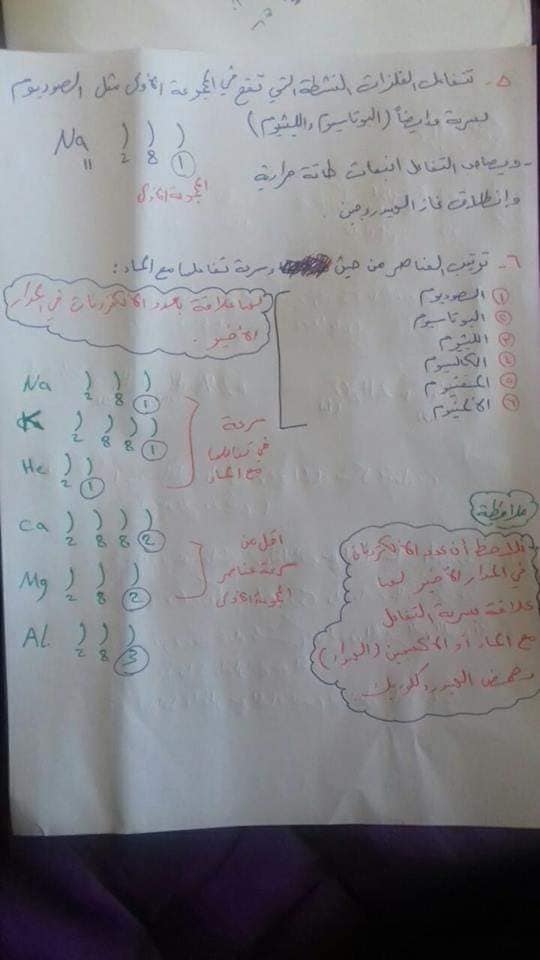 ٥- تتفاعل الفلزات النشطة التي تقع في المجموعة الأولى مثل الصوديوم
بسرعة وأيضاً (البوتاسيوم والليثيوم)
Na ) ) )
11 2 8 1
المجموعة الأولى
- ويصاحب التفاعل انبعاث طاقة حرارية
وإنطلاق غاز الهيدروجين .
٦- ترتيب العناصر من حيث وسرعة تفاعلها مع الماء :
① الصوديوم
② البوتاسيوم
③ الليثيوم
④ الكالسيوم
⑤ المغنسيوم
⑥ الألمنيوم
لها علاقة بعدد الالكترونات في المدار
الأخير .
Na ) ) )
2 8 1
K ) ) ) )
2 8 8 1
He ) )
2 1
سرعة
في تفاعلها
مع الماء
Ca ) ) ) )
2 8 8 2
Mg ) ) )
2 8 2
Al ) ) )
2 8 3
اقل من
سرعة عناصر
المجموعة الأولى
ملاحظة
نلاحظ أن عدد الالكترونات
في المدار الأخير لها
علاقة بسرعة التفاعل
مع الماء أو الأكسجين (الهواء)
وحمض الهيدروكلوريك